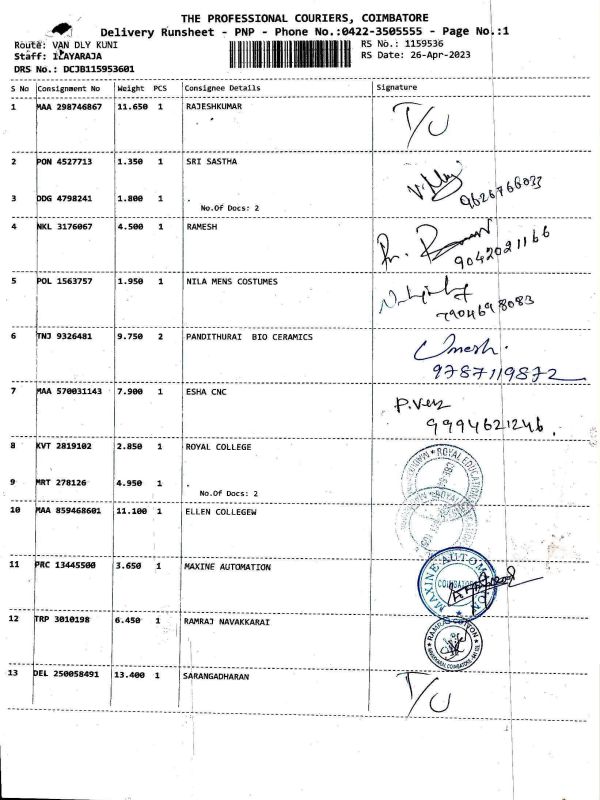 THE PROFESSIONAL COURIERS, COIMBATORE
Delivery Runsheet - PNP - Phone No.:0422-3505555 - Page No.:1
Route: VAN DLY KUNI RS No.: 1159536
Staff: ILAYARAJA RS Date: 26-Apr-2023
DRS No.: DCJB115953601
S No Consignment No Weight PCS Consignee Details Signature
1 MAA 298746867 11.650 1 RAJESHKUMAR T/U
2 PON 4527713 1.350 1 SRI SASTHA
9626766033
3 DDG 4798241 1.800 1 .
No.Of Docs: 2
4 NKL 3176067 4.500 1 RAMESH
9042021166
5 POL 1563757 1.950 1 NILA MENS COSTUMES
7904698083
6 TNJ 9326481 9.750 2 PANDITHURAI BIO CERAMICS Umesh.
9787119872
7 MAA 570031143 7.900 1 ESHA CNC
9994621246.
8 KVT 2819102 2.850 1 ROYAL COLLEGE
ROYAL EDUCATION
9 MRT 278126 4.950 1 .
No.Of Docs: 2
10 MAA 859468601 11.100 1 ELLEN COLLEGEW
11 PRC 13445500 3.650 1 MAXINE AUTOMATION
MAXINE AUTOMATION
COIMBATORE
12 TRP 3010198 6.450 1 RAMRAJ NAVAKKARAI
RAMRAJ COTTON
13 DEL 250058491 13.400 1 SARANGADHARAN T/U